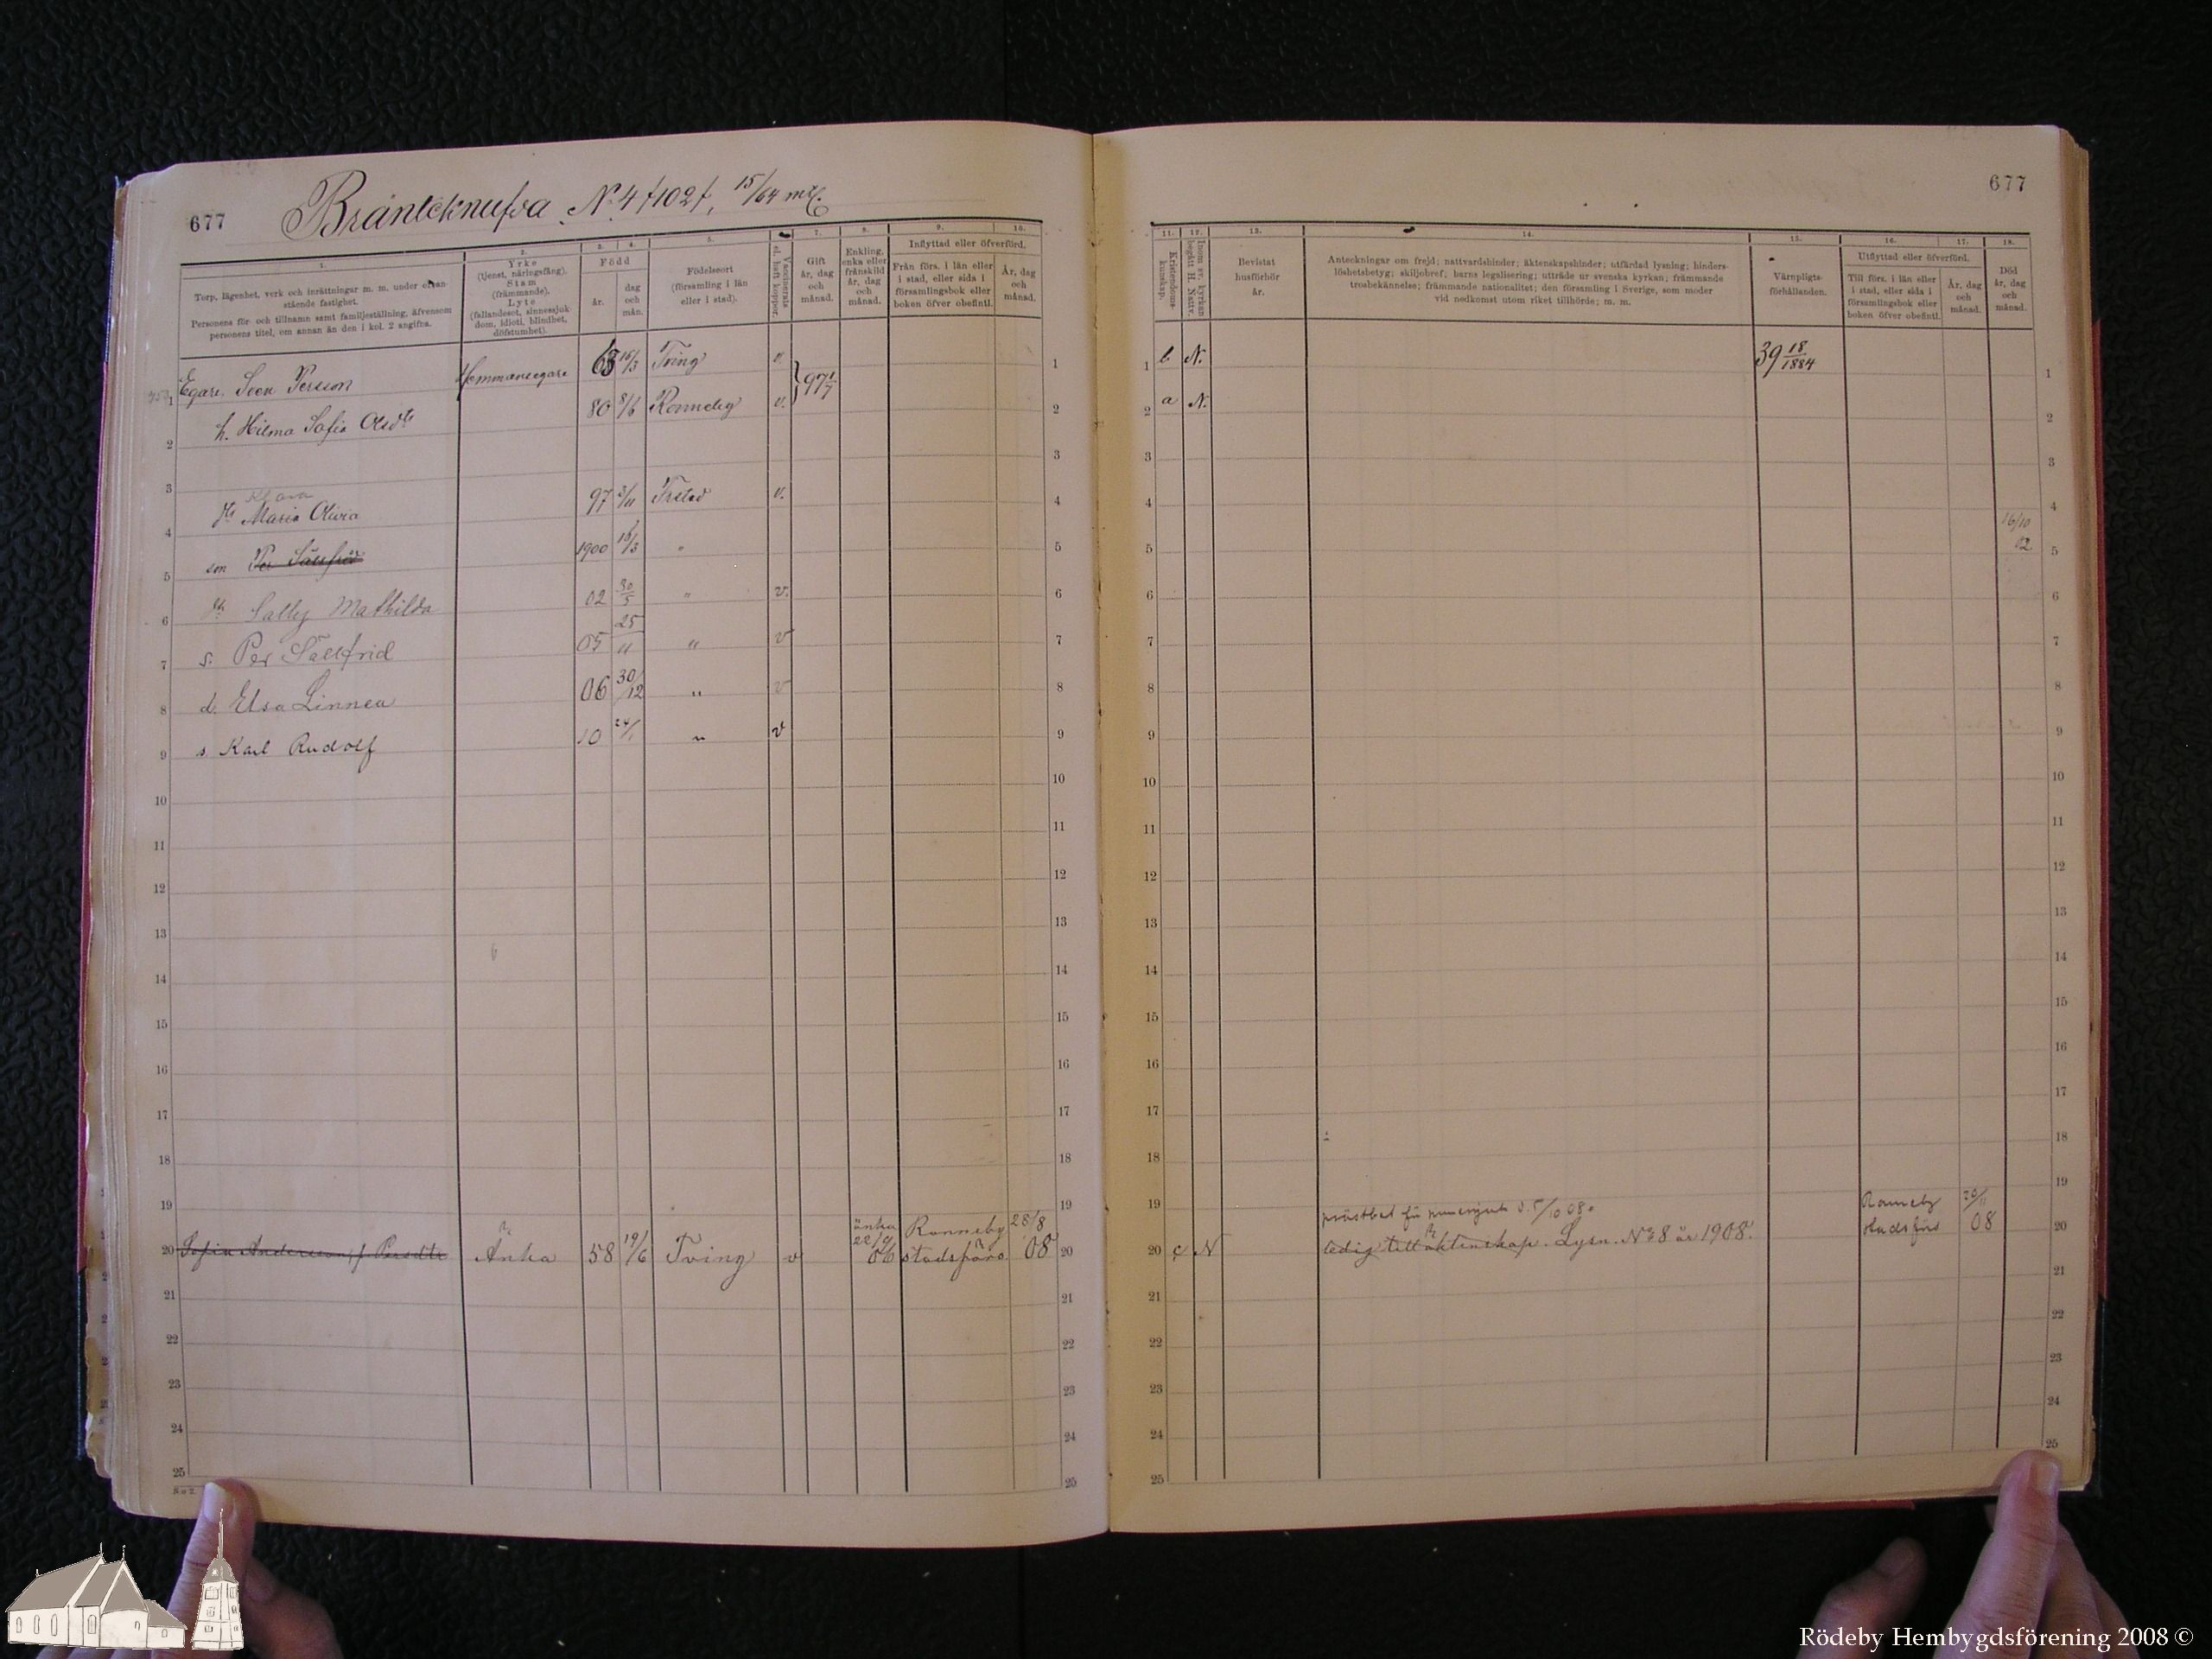 677
Bränteknufva N:o 4 /102/, 15/64 mtl.
1. 2. 3. 4. 5. 7. 8. 9. 10.
Torp, lägenhet, verk och inrättningar m. m. under ofvanstående fastighet.
Personens för- och tillnamn samt familjeställning, äfvensom personens titel, om annan än den i kol. 2 angifna.
Yrke (tjenst, näringsfång). Stam (främmande). Lyte (fallandesot, sinnessjukdom, idioti, blindhet, döfstumhet).
Född
år. dag och mån.
Födelseort (församling i län eller i stad).
Vaccinerats el. haft koppor.
Gift år, dag och månad.
Enkling, enka eller frånskild år, dag och månad.
Inflyttad eller öfverförd.
Från förs. i län eller i stad, eller sida i församlingsbok eller boken öfver obefintl.
År, dag och månad.
1 Egare Sven Persson Hemmansegare 63 16/3 Tving v. } 97 1/7 1
2 h. Hilma Sofia Olsdtr 80 8/6 Ronneby v. 2
3 3
4 dtr Maria Olivia 97 3/11 Fristad v. 4
5 son Per Sällfrid 1900 16/3 " 5
6 dtr Sally Mathilda 02 30/5 " v. 6
7 s. Per Sällfrid 05 25/11 " v 7
8 d. Elsa Linnea 06 30/12 " v 8
9 s. Karl Rudolf 10 24/1 " v 9
10 10
11 11
12 12
13 13
14 14
15 15
16 16
17 17
18 18
19 19
20 Sofia Andersson, f. Persdtr Änka 58 19/6 Tving v änka 22/4 06 Ronneby stadsförs. 28/8 08 20
21 21
22 22
23 23
24 24
25 25
677
11. 12. 13. 14. 15. 16. 17. 18.
Kristendomskunskap.
Inom sv. kyrkan begått H. Nattv.
Bevistat husförhör år.
Anteckningar om frejd; nattvardshinder; äktenskapshinder; utfärdad lysning; hinderslöshetsbetyg; skiljobref; barns legalisering; utträde ur svenska kyrkan; främmande trosbekännelse; främmande nationalitet; den församling i Sverige, som moder vid nedkomst utom riket tillhörde; m. m.
Värnpligtsförhållanden.
Utflyttad eller öfverförd.
Till förs. i län eller i stad, eller sida i församlingsbok eller boken öfver obefintl.
År, dag och månad.
Död år, dag och månad.
1 b N. 39 18/1884 1
2 a N. 2
3 3
4 4
5 16/10 02 5
6 6
7 7
8 8
9 9
10 10
11 11
12 12
13 13
14 14
15 15
16 16
17 17
18 18
19 d. 5/10 08. 19
20 c N ledig till äktenskap. Lysn. No 8 år 1908. Ronneby stadsförs 20/11 08 20
21 21
22 22
23 23
24 24
25 25
Rödeby Hembygdsförening 2008 ©